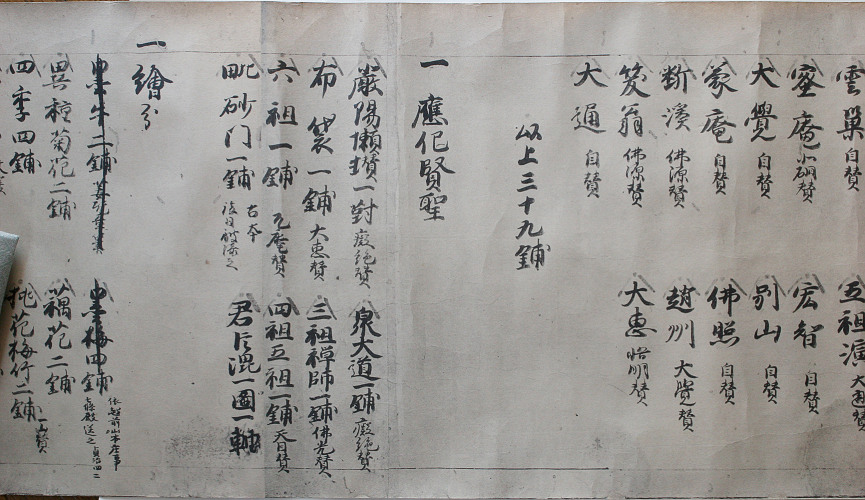 雲巣 自賛
五祖演
密庵 賛
宏智 自賛
大覺 自賛
別山 自賛
蒙庵 自賛
佛照 自賛
断溪 佛源賛
趙州 大覺賛
笑翁 佛源賛
大惠 賛
大通 自賛
以上三十九鋪
一 應化賢聖
巌陽懶瓚一對 癡絶賛
泉大道一鋪 癡絶賛
布袋一鋪 大惠賛
三祖禅師一鋪 佛光賛
六祖一鋪 賛
四祖五祖一鋪 天目賛
毗砂门一鋪 古本
君臣混一圖一軸
一 繪分
墨牛二鋪
墨梅四鋪
異種菊花二鋪
藕花二鋪
四季四鋪
桃花梅竹二鋪